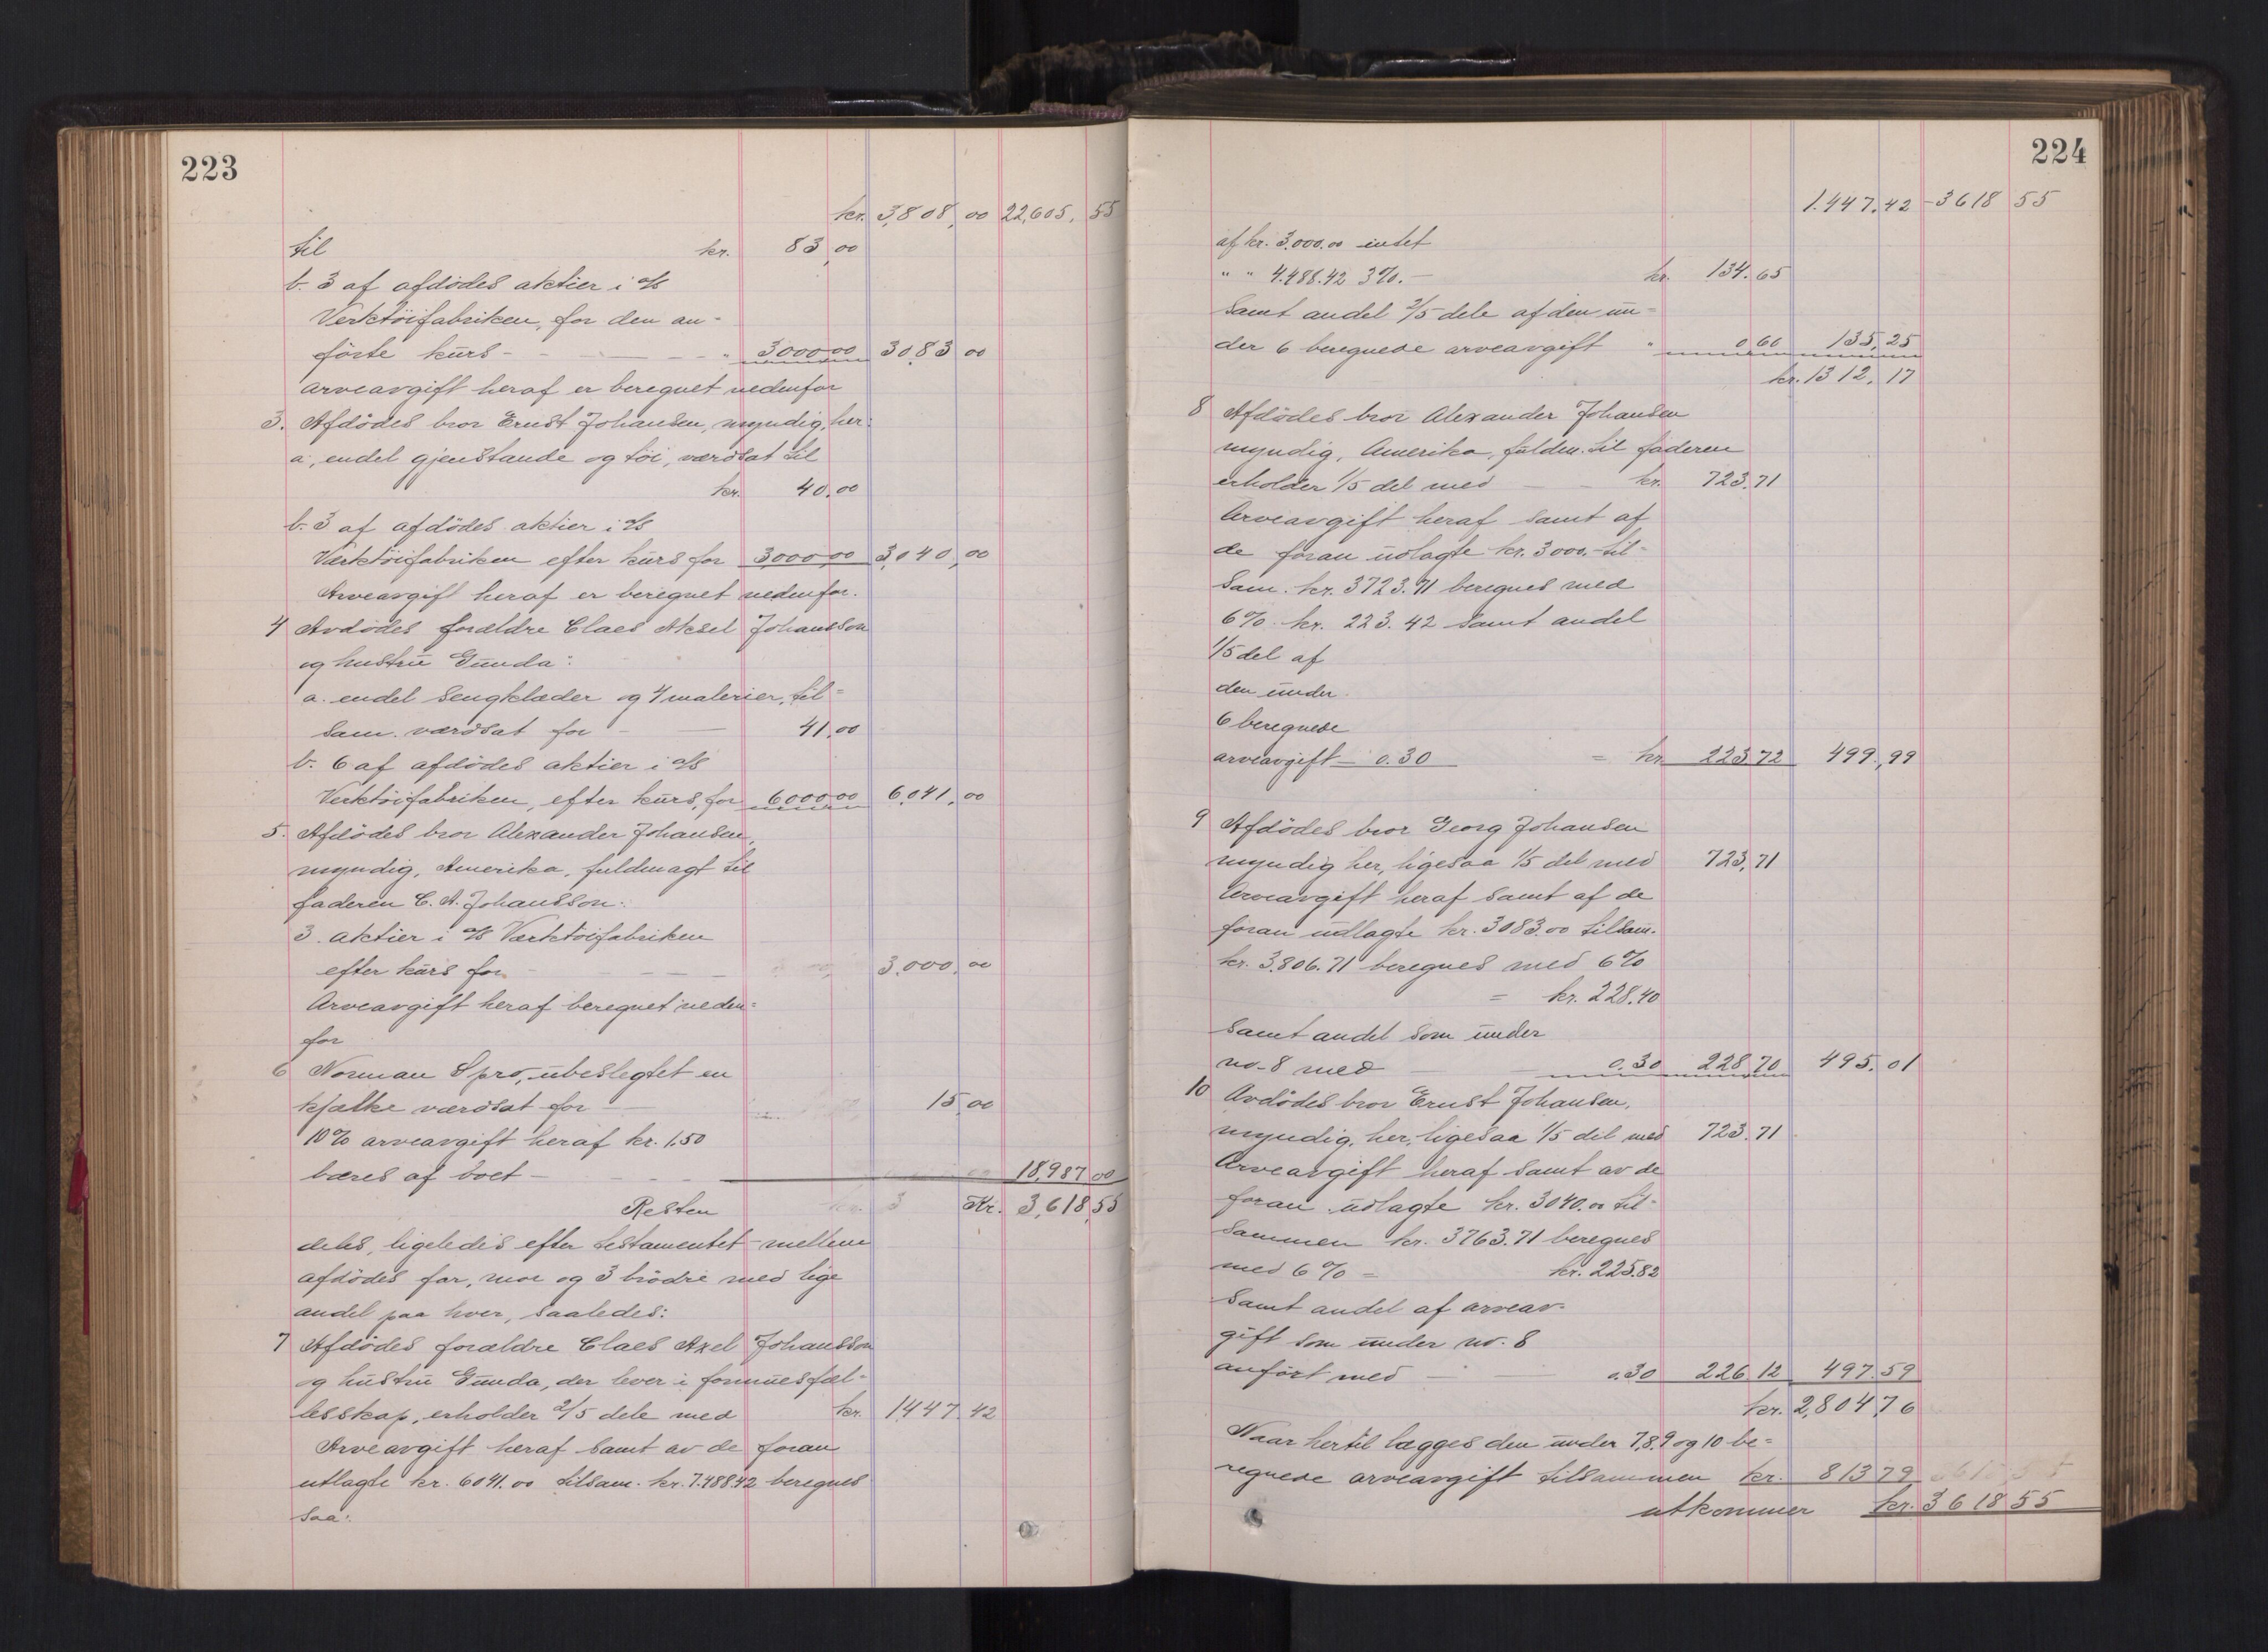 223
kr. 3,808,00 22,605,55
til kr. 83,00
b. 3 af afdödes aktier i A/S
Verktöifabriken, for den an-
förte kurs - - - - " 3000 00 3083 00
arveavgift heraf er beregnet nedenfor
3. Afdödes bror Ernst Johansen, myndig, her:
a, endel gjenstande og töi, værdsat til
kr. 40.00
b. 3 af afdödes aktier i A/S
Værktöifabriken efter kurs for 3000 00 3,040,00
Arveavgift heraf er beregnet nedenfor.
4 Avdödes forældre Claes Aksel Johansson
og hustru Gunda:
a. endel sengklæder og 4 malerier, til-
sam. værdsat for - 41.00
b. 6 af afdödes aktier i A/S
Verktöifabriken, efter kurs, for 6000 00 6,041,00
5. Afdödes bror Alexander Johansen,
myndig, Amerika, fuldmagt til
faderen C. A. Johansson:
3. aktier i A/S Værktöifabriken
efter kurs for - - - - 3.000.00
Arveavgift heraf beregnet neden-
for
6 Norman Spro, ubeslegtet en
kjælke værdsat for - 15,00
10% arveavgift heraf kr. 1,50
bæres af boet - - - 18,987 00
Resten Kr. 3,618,55
deles, ligeledes efter testamentet - mellem
afdödes far, mor og 3 brödre med lige
andel paa hver, saaledes:
7 Afdödes forældre Claes Axel Johansson
og hustru Gunda, der lever i formuesfæl-
lesskap, erholder 2/5 dele med kr. 1447.42
Arveavgift heraf samt av de foran
utlagte kr. 6041.00 tilsam. kr. 7.488.42 beregnes
saa:
224
1.447.42 - 3618 55
af kr. 3.000.00 intet
" " 4.488.42 3%. - kr. 134.65
samt andel 2/5 dele af den un-
der 6 beregnede arveavgift " 0 60 135,25
kr. 1312,17
8 Afdödes bror Alexander Johansen
myndig, Amerika, fuldm. til faderen
erholder 1/5 del med - - kr. 723.71
Arveavgift heraf samt af
de foran udlagte kr. 3000.- til-
sam. kr. 3723.71 beregnes med
6% kr. 223.42 samt andel
1/5 del af
den under
6 beregnede
arveavgift - 0.30 = kr. 223 72 499,,99
9 Afdödes bror Georg Johansen
myndig her, ligesaa 1/5 del med 723,71
Arveavgift heraf samt af de
foran udlagte kr. 3083.00 tilsam.
kr. 3.806.71 beregnes med 6%
= kr. 228.40
samt andel som under
no. 8 med - - 0.30 228 70 495.01
10 Avdödes bror Ernst Johansen,
myndig, her, ligesaa 1/5 del med 723.71
Arveavgift heraf samt av de
foran udlagte kr. 3040.00 til-
sammen kr. 3763.71 beregnes
med 6% = kr. 225.82
samt andel af arveav-
gift som under no. 8
anfört med - - 0.30 226 12 497.59
kr. 2,804 76
Naar hertil lægges den under 7, 8, 9 og 10 be-
regnede arveavgift tilsammen kr. 813 79
utkommer kr. 3618 55